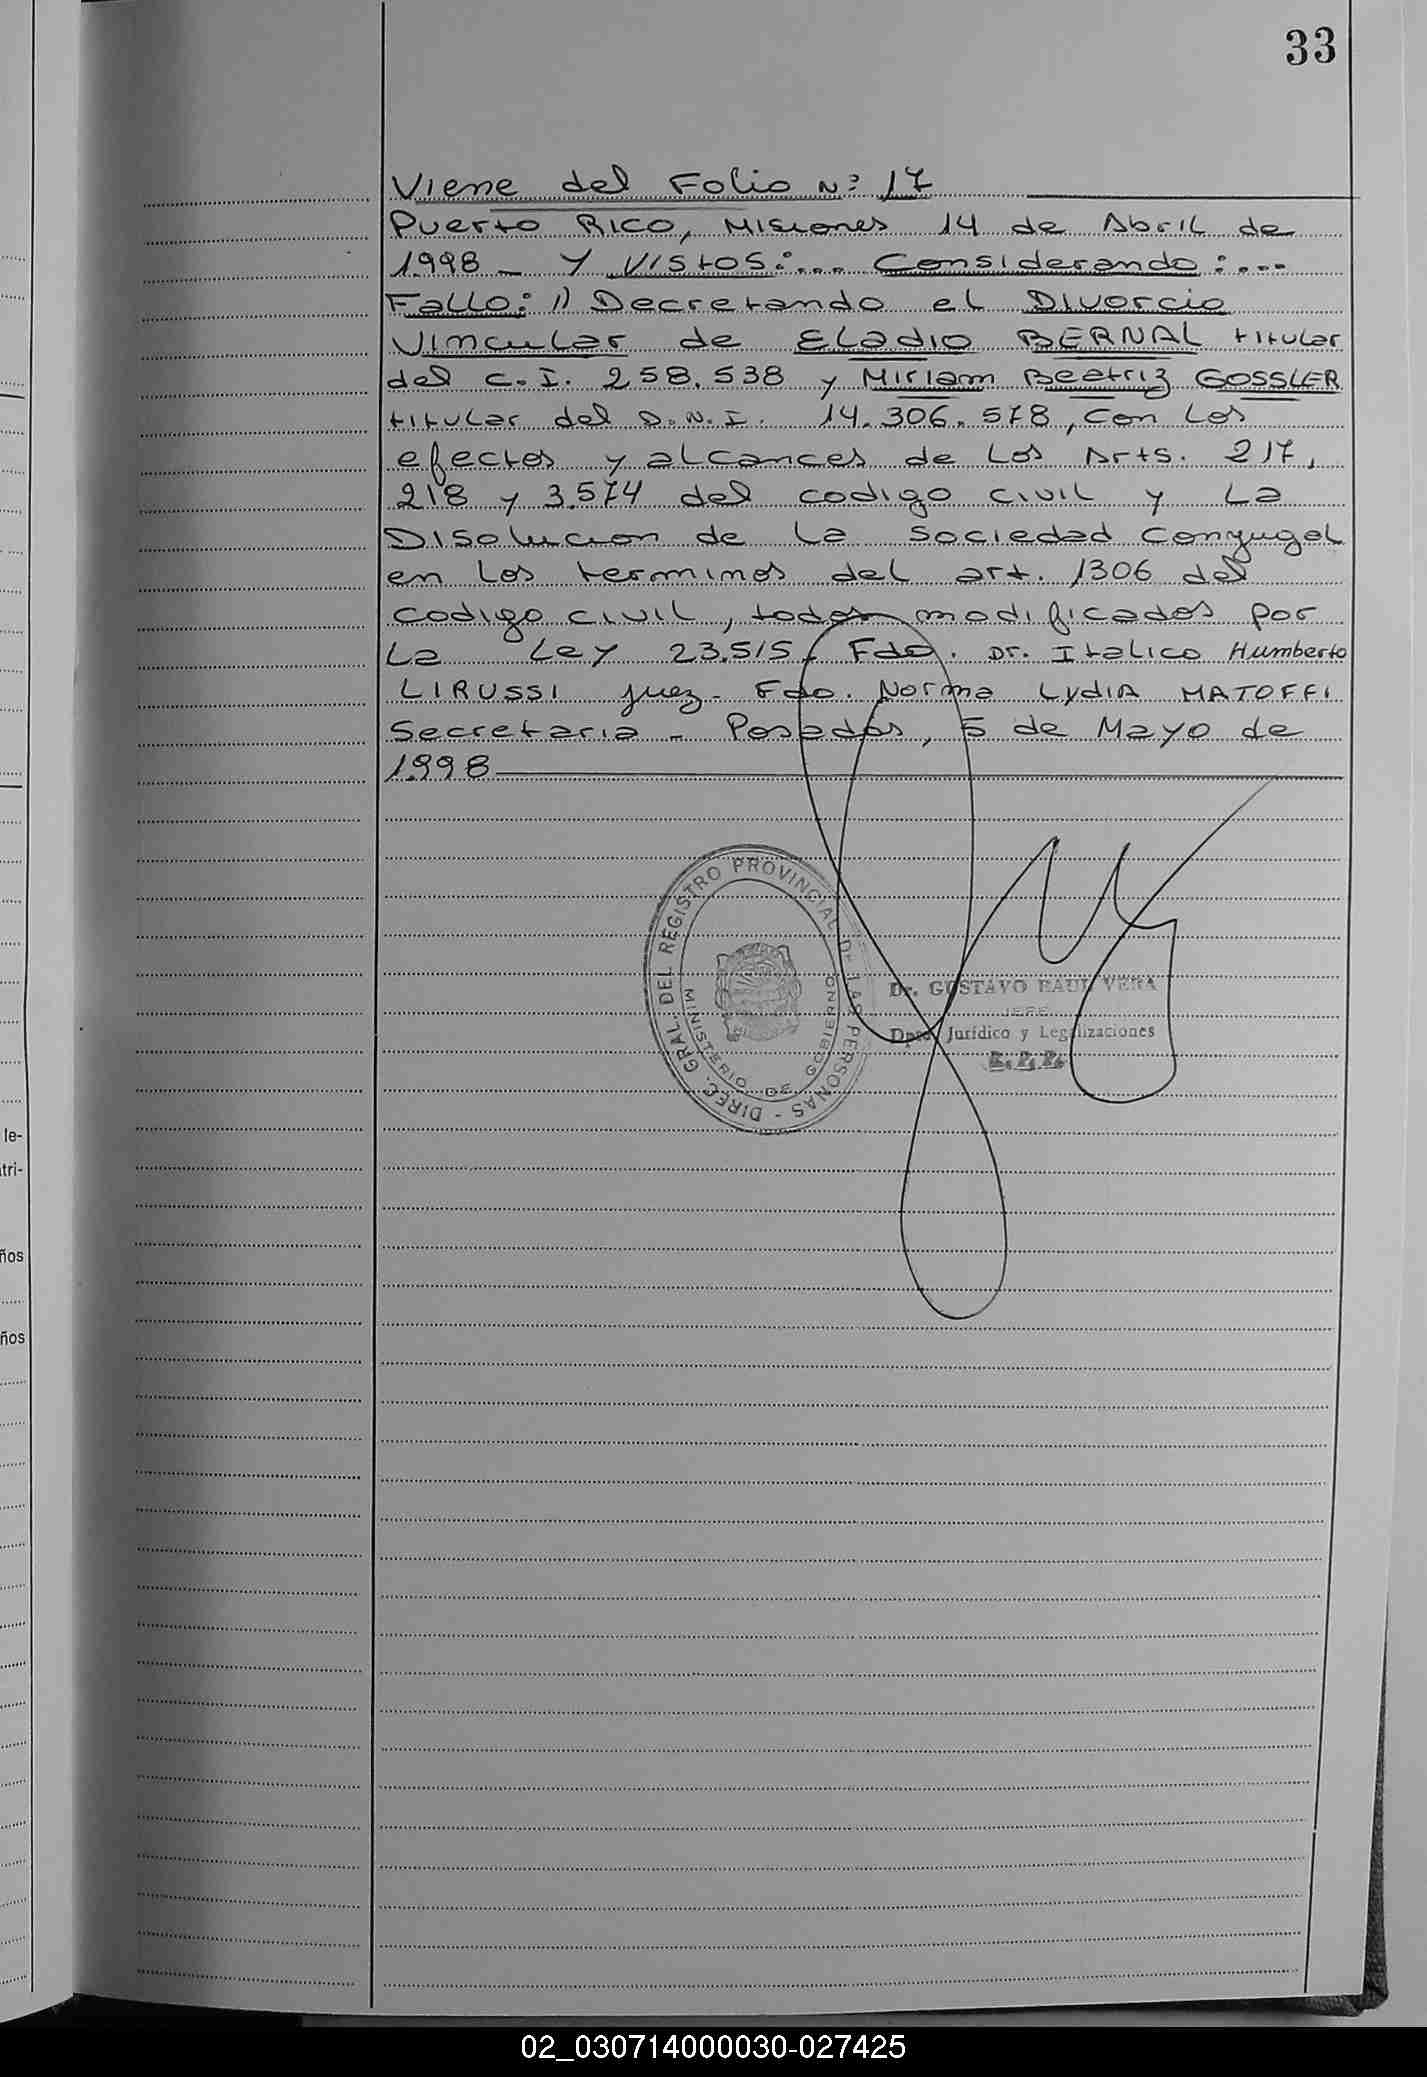 33
Viene del Folio N: 17
Puerto Rico, Misiones 14 de Abril de
1998 - Y Vistos:... Considerando:...
Fallo: 1) Decretando el Divorcio
Vincular de Eladio BERNAL titular
del C.I. 258.538 y Miriam Beatriz GOSSLER
titular del D.N.I. 14.306.578, con los
efectos y alcances de los Arts. 217,
218 y 3.574 del codigo civil y la
Disolucion de la Sociedad Conyugal
en los terminos del art. 1306 del
Codigo civil, todos modificados por
La Ley 23.515. Fdo. Dr. Italico Humberto
LIRUSSI juez - Fdo. Norma Lydia MATOFFI
Secretaria - Posadas, 5 de Mayo de
1998
DIREC. GRAL. DEL REGISTRO PROVINCIAL DE LAS PERSONAS -
MINISTERIO DE GOBIERNO
Dr. GUSTAVO RAUL VERA
JEFE
Dpto. Jurídico y Legalizaciones
le-
tri-
ños
ños
02_030714000030-027425